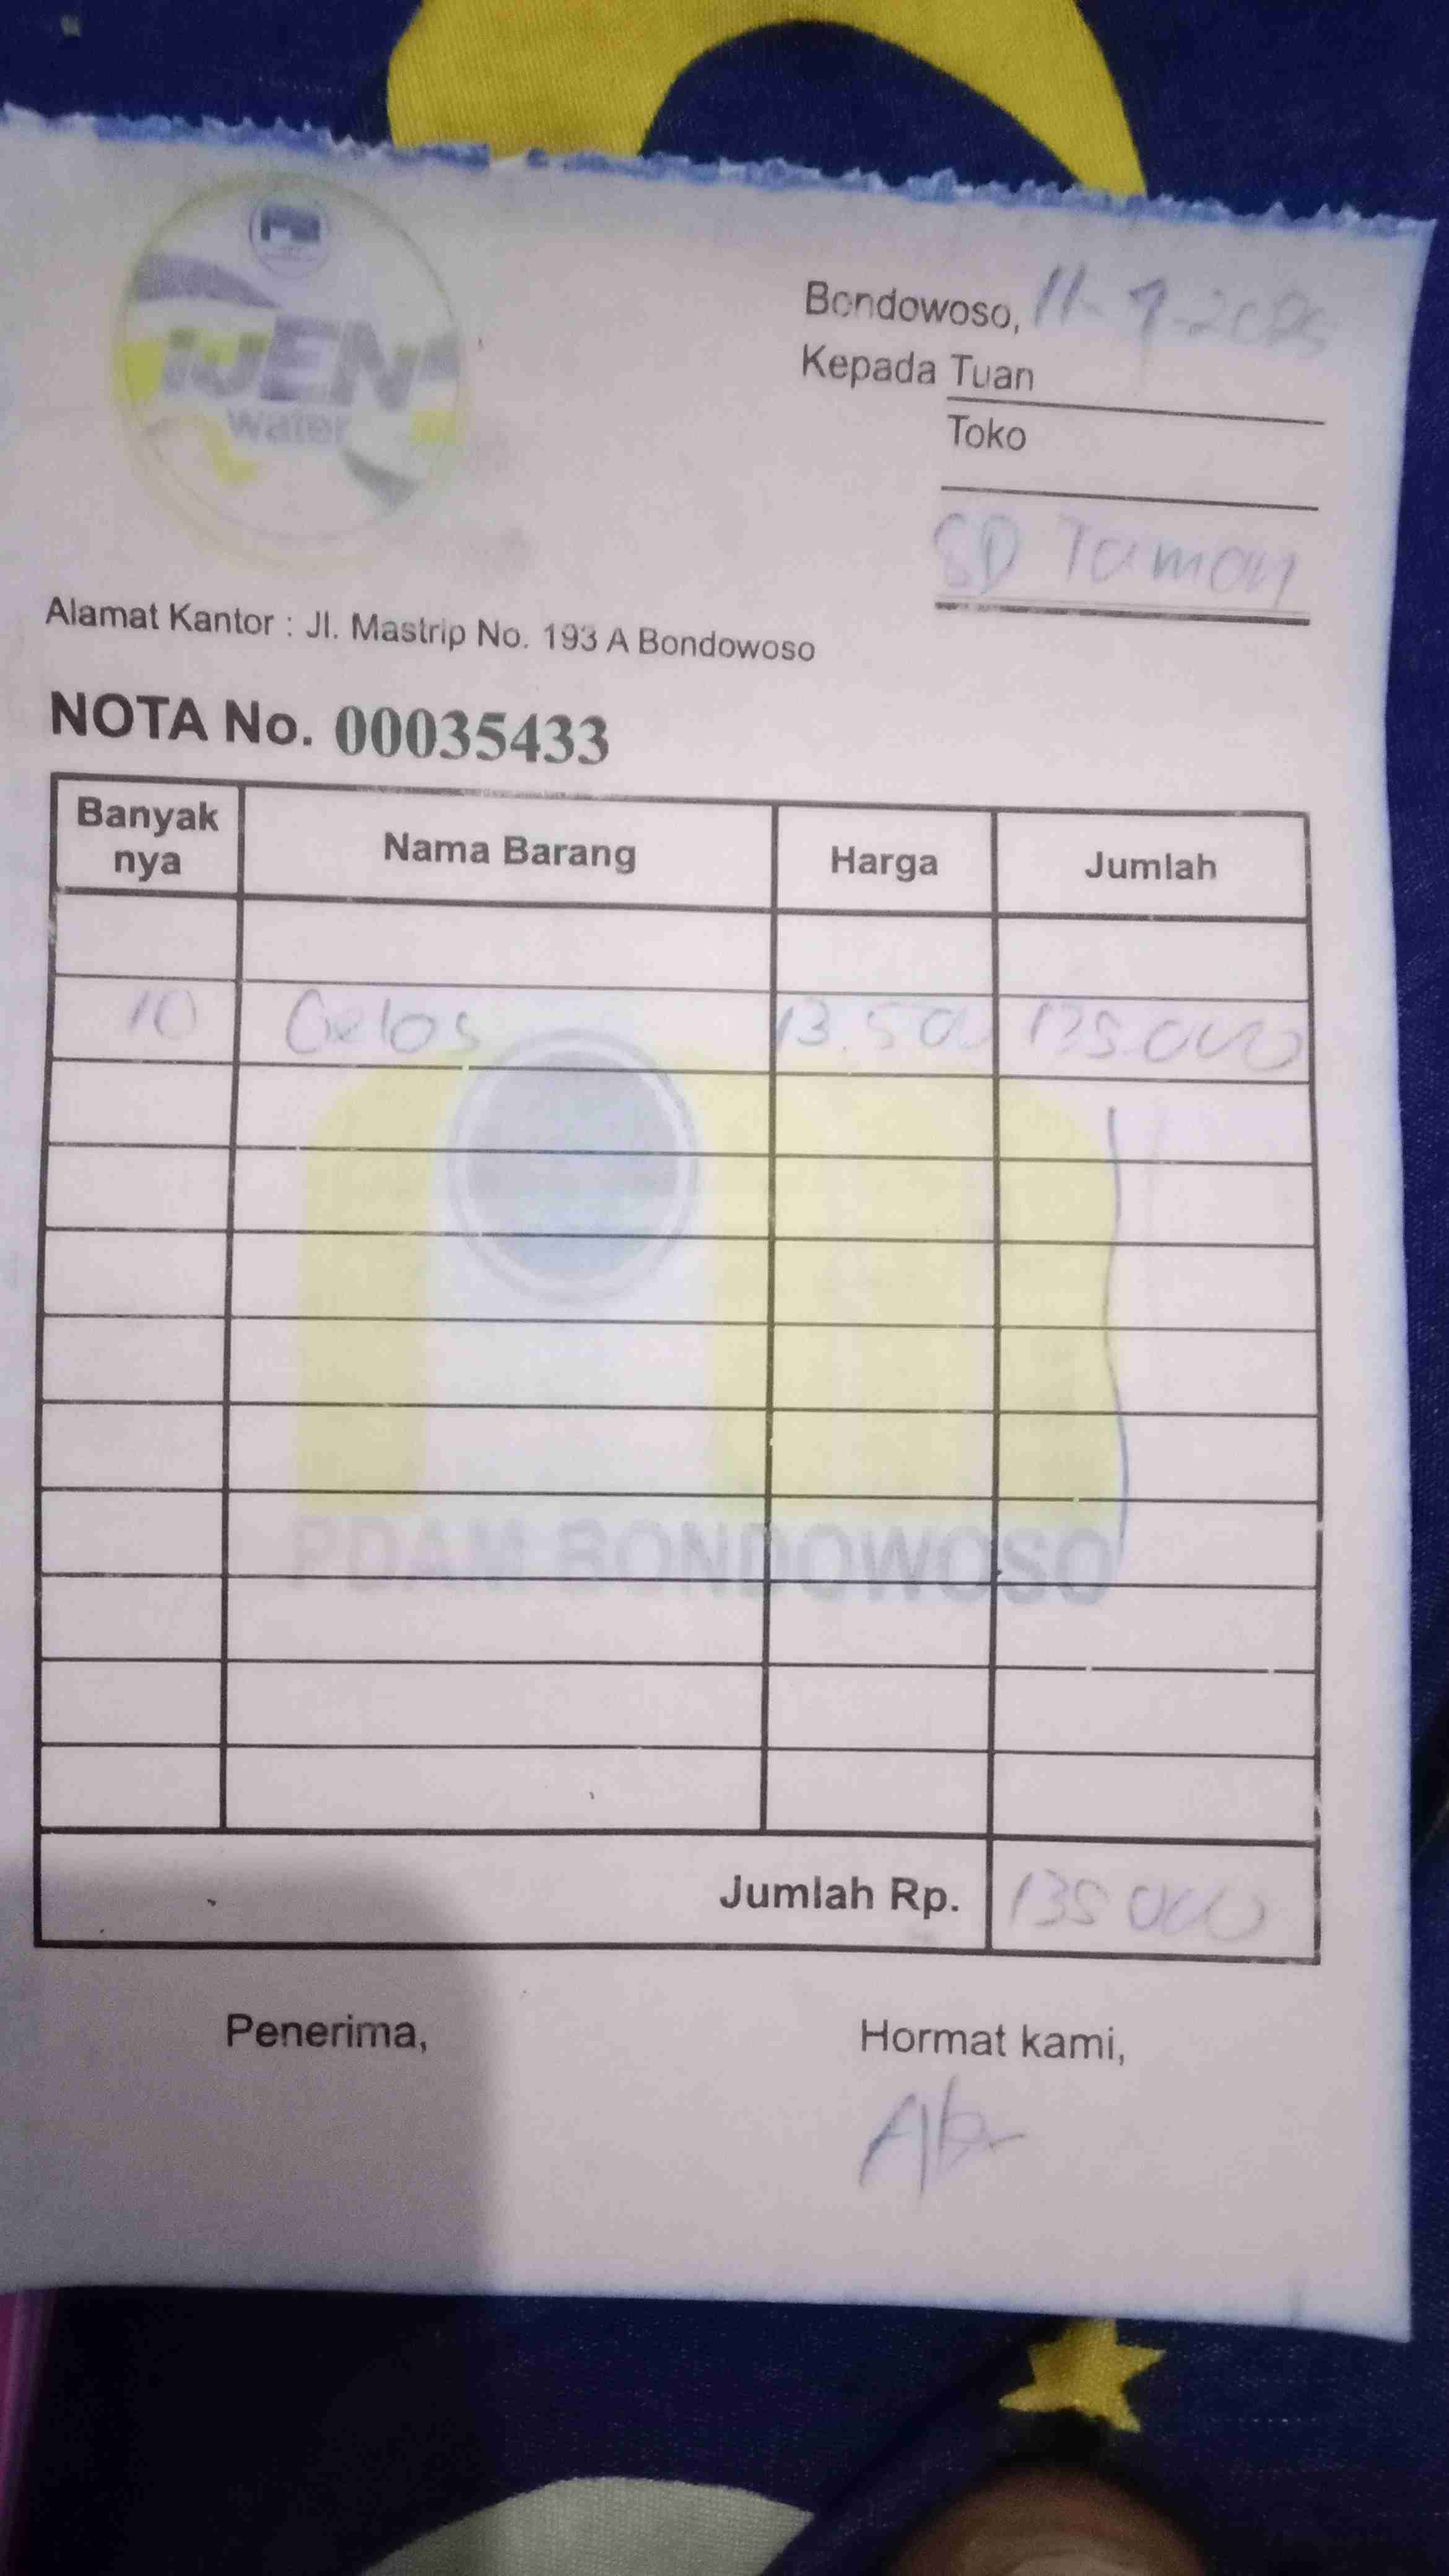 iJEN
Water
Bondowoso, 11-9-2025
Kepada Tuan
Toko
SD Taman
Alamat Kantor : Jl. Mastrip No. 193 A Bondowoso
NOTA No. 00035433
Banyak nya Nama Barang Harga Jumlah
10 Gelas 13.500 135.000
PDAM BONDOWOSO
Jumlah Rp. 135 000
Penerima, Hormat kami,